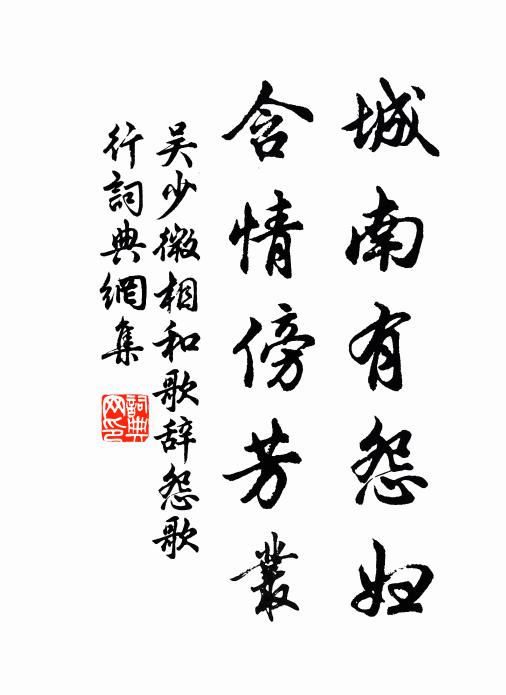 城南有怨妇
含情傍芳叢
吴少微相和歌辞怨歌
行詞典網集
詞典
网印